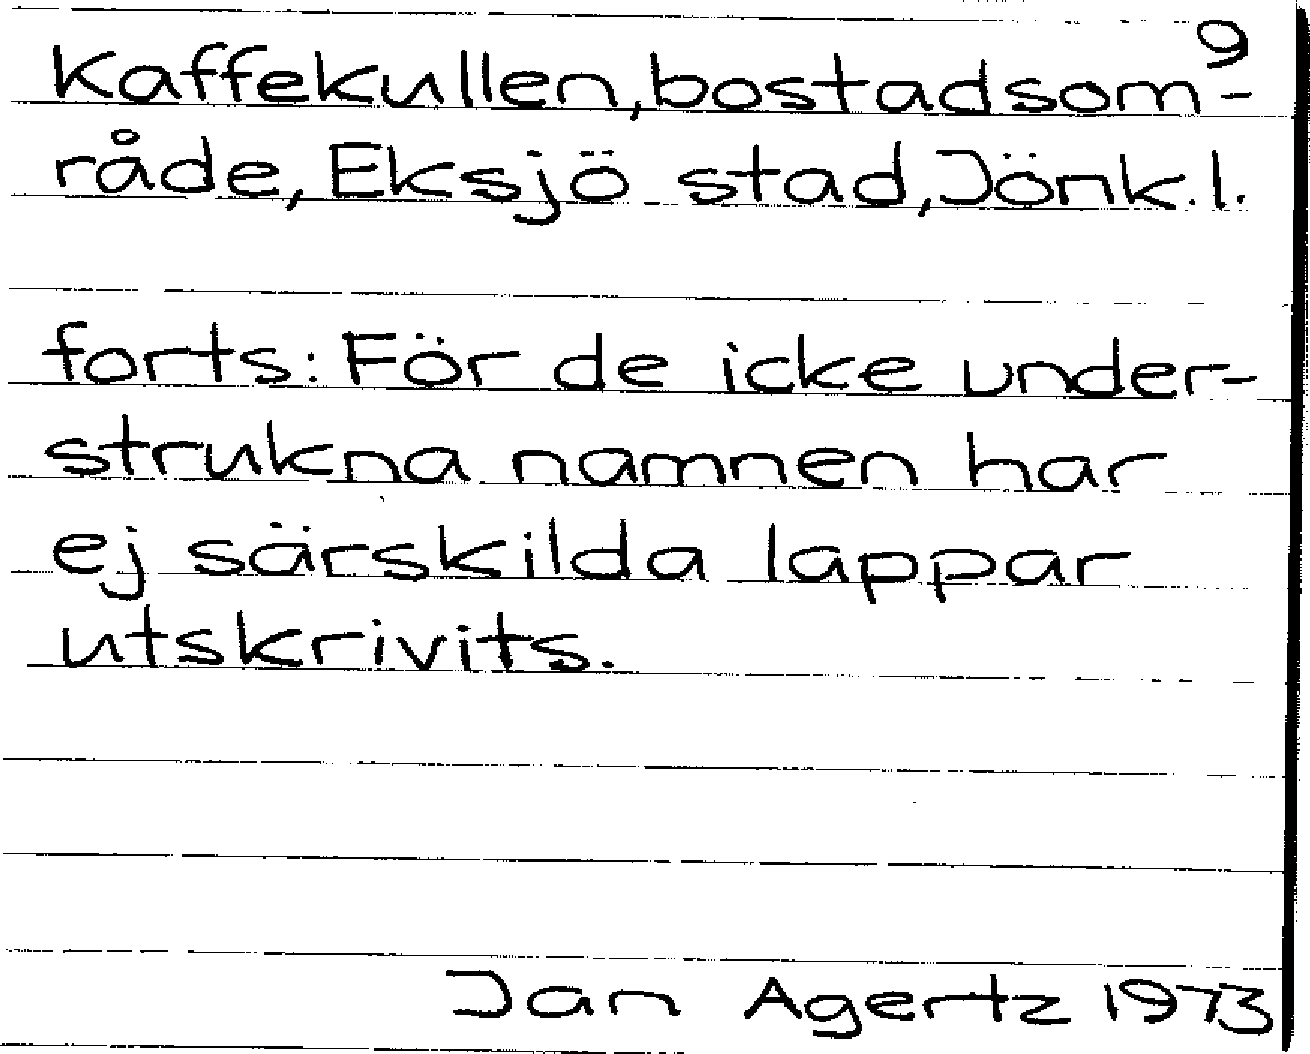 9
Kaffekullen, bostadsom-
råde, Eksjö stad, Jönk.l.
forts: För de icke under-
strukna namnen har
ej särskilda lappar
utskrivits.
Jan Agertz 1973